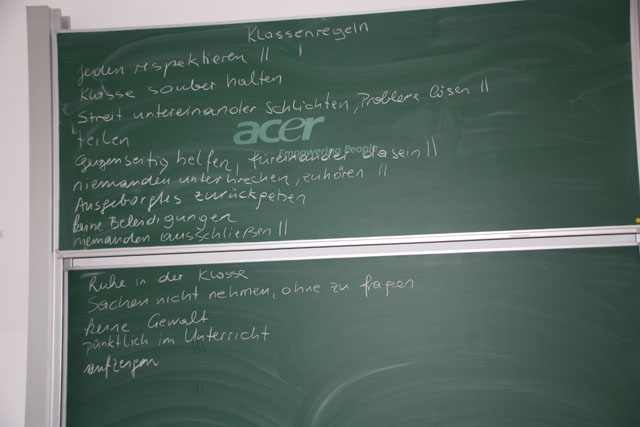 Klassenregeln
jeden respektieren ||
Klasse sauber halten
Streit untereinander schlichten, Probleme lösen ||
teilen
acer
Empowering People
gegenseitig helfen, füreinander da sein ||
niemanden unterbrechen, zuhören ||
Ausgeborgtes zurückgeben
keine Beleidigungen
niemanden ausschließen ||
Ruhe in der Klasse
Sachen nicht nehmen, ohne zu fragen
keine Gewalt
pünktlich im Unterricht
aufzeigen